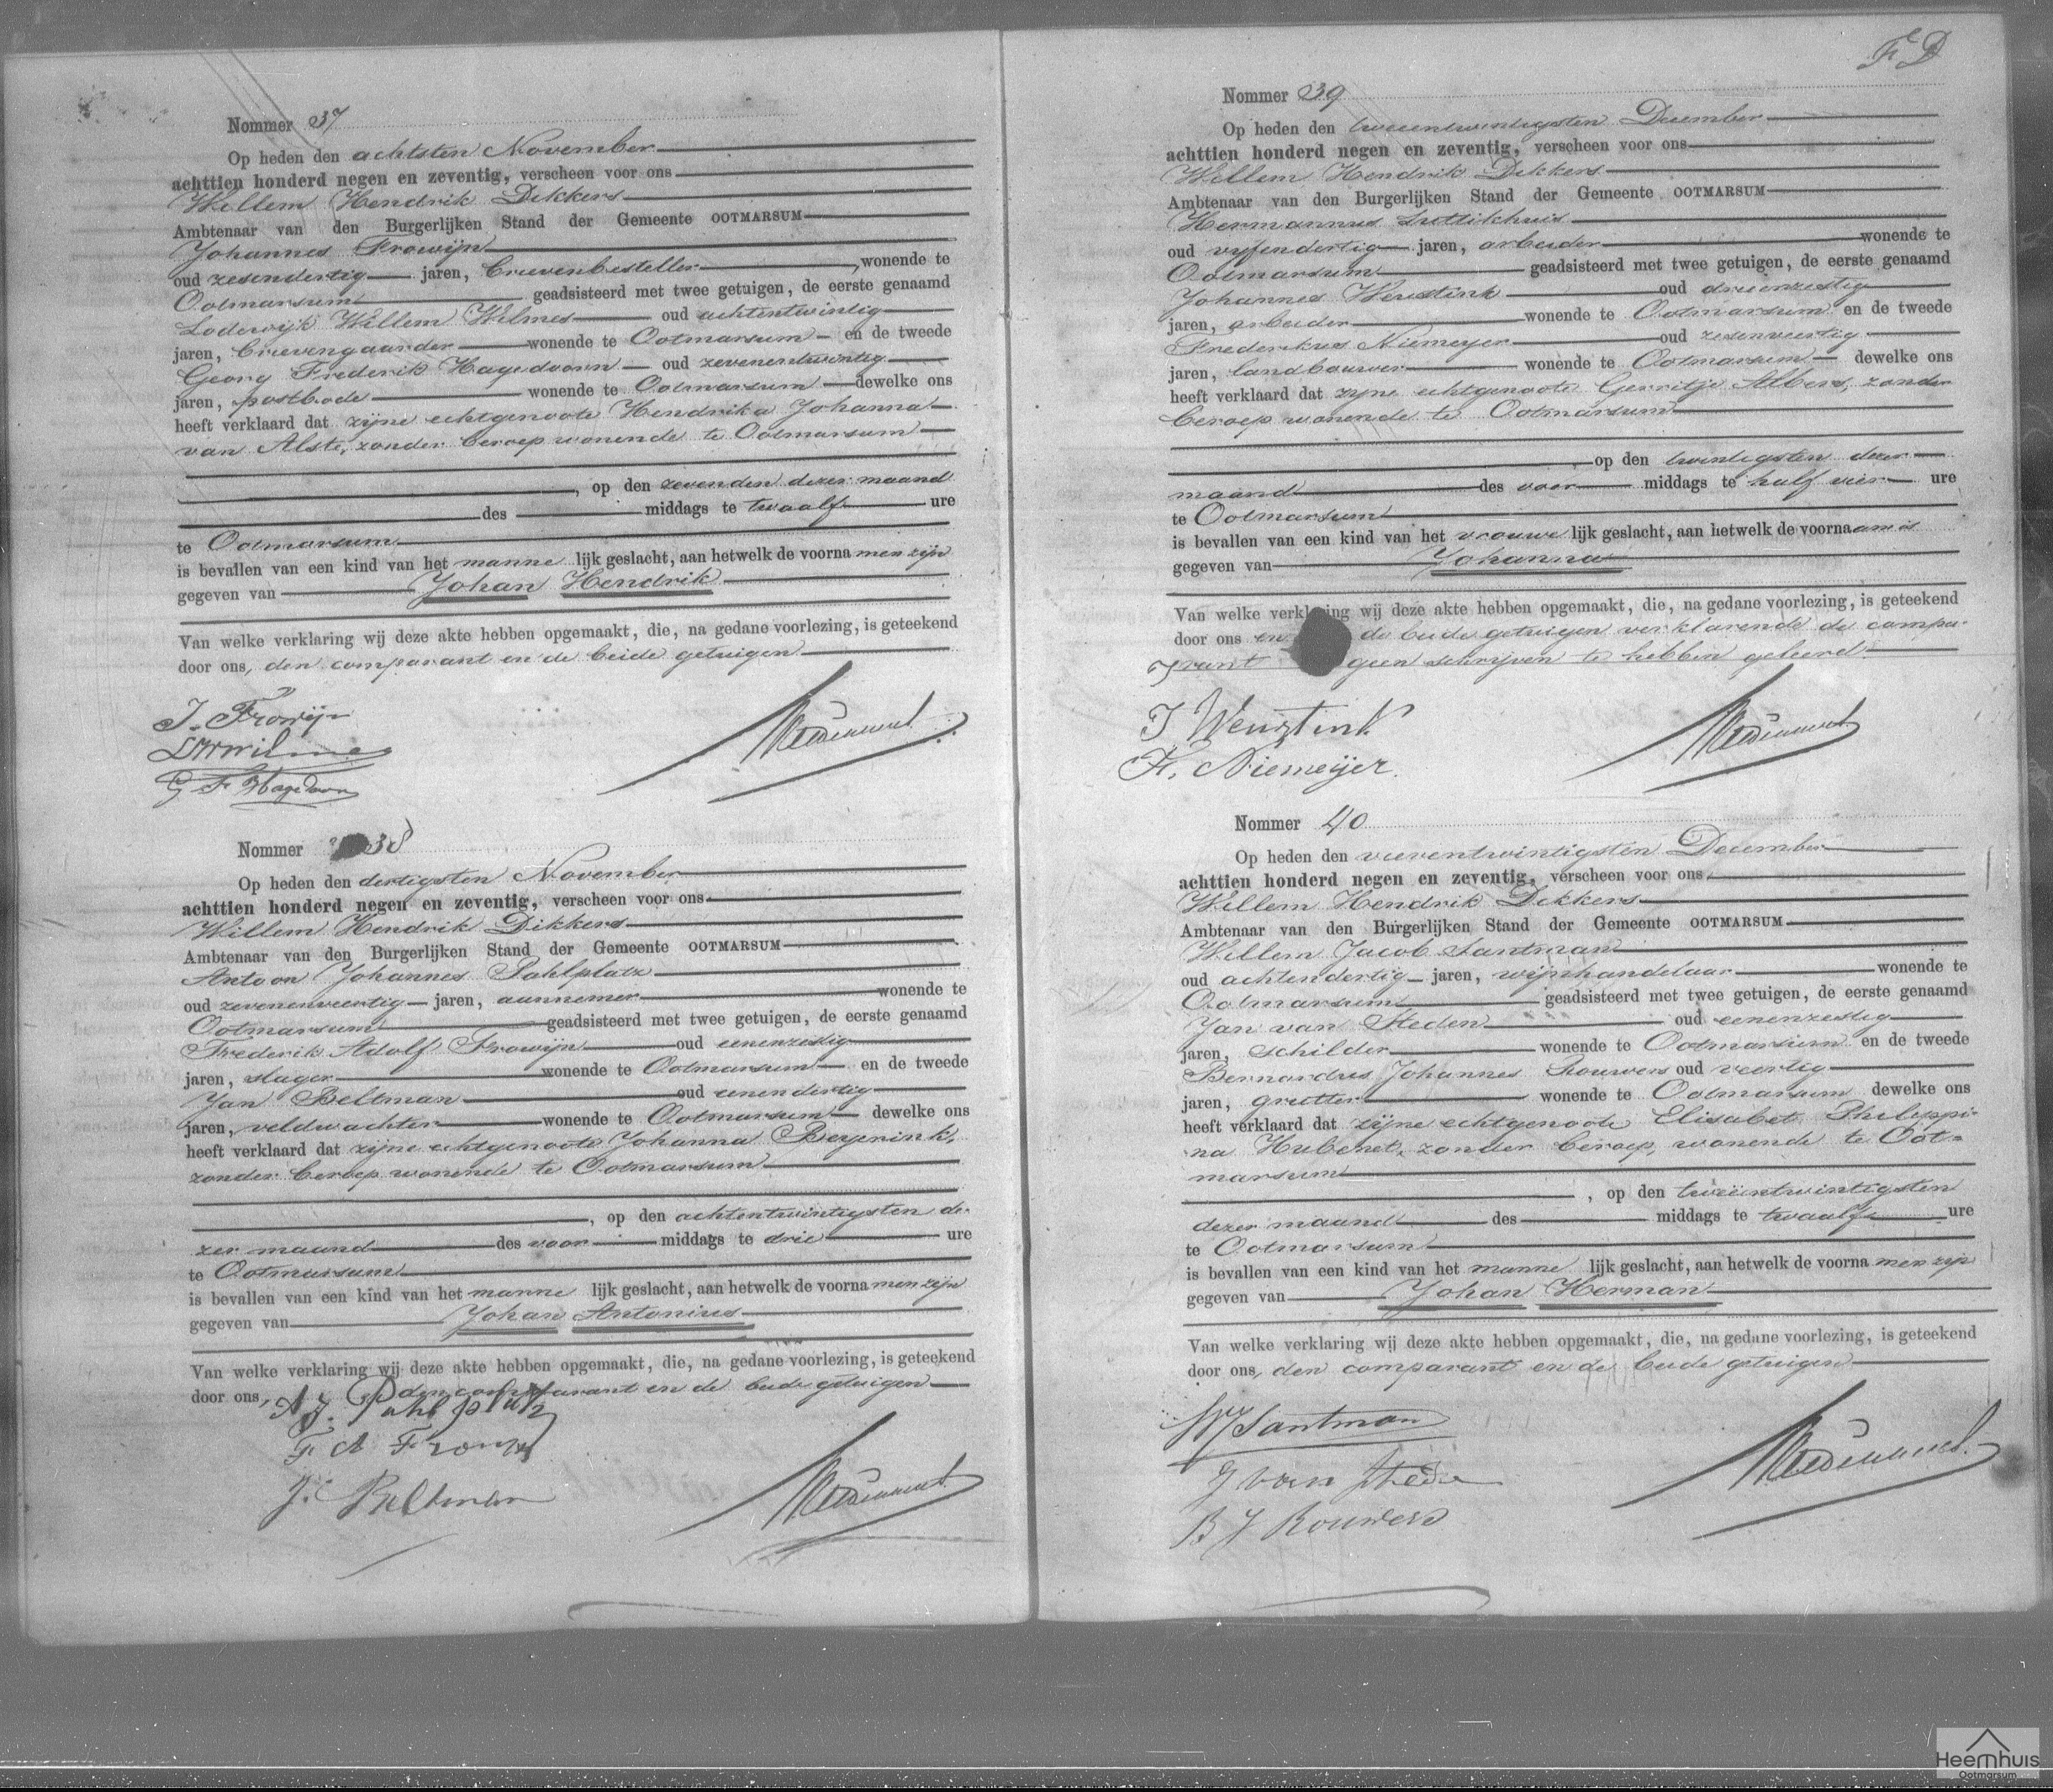 Nommer 37
Op heden den achtsten November
achttien honderd negen en zeventig, verscheen voor ons
Willem Hendrik Dikkers
Ambtenaar van den Burgerlijken Stand der Gemeente OOTMARSUM
Johannes Frowijn
oud zesendertig jaren, brievenbesteller, wonende te
Ootmarsum geadsisteerd met twee getuigen, de eerste genaamd
Lodewijk Willem Wilmes oud achtentwintig
jaren, brievengaarder wonende te Ootmarsum en de tweede
Georg Frederik Hagedoorn oud zevenentwintig
jaren, postbode wonende te Ootmarsum dewelke ons
heeft verklaard dat zijne echtgenoote Hendrika Johanna
van Alste, zonder beroep wonende te Ootmarsum
, op den zevenden dezer maand
des middags te twaalf ure
te Ootmarsum
is bevallen van een kind van het manne lijk geslacht, aan hetwelk de voorna men zijn
gegeven van Johan Hendrik
Van welke verklaring wij deze akte hebben opgemaakt, die, na gedane voorlezing, is geteekend
door ons, den comparant en de beide getuigen
J. Frowijn
LWWilmes
G F Hagedoorn
Nommer 38
Op heden den dertigsten November
achttien honderd negen en zeventig, verscheen voor ons
Willem Hendrik Dikkers
Ambtenaar van den Burgerlijken Stand der Gemeente OOTMARSUM
Antoon Johannes Pahlplatz
oud zevenenveertig jaren, aannemer wonende te
Ootmarsum geadsisteerd met twee getuigen, de eerste genaamd
Frederik Adolf Frowijn oud eenenzestig
jaren, slager wonende te Ootmarsum en de tweede
Jan Beltman oud eenendertig
jaren, veldwachter wonende te Ootmarsum dewelke ons
heeft verklaard dat zijne echtgenoote Johanna Beyerink,
zonder beroep wonende te Ootmarsum
, op den achtentwintigsten de-
zer maand des voor middags te drie ure
te Ootmarsum
is bevallen van een kind van het manne lijk geslacht, aan hetwelk de voorna men zijn
gegeven van Johan Antonius
Van welke verklaring wij deze akte hebben opgemaakt, die, na gedane voorlezing, is geteekend
door ons, den comparant en de beide getuigen
A. J. Pahlplatz
F A Frowijn
J. Beltman
Fe D
Nommer 39
Op heden den tweeentwintigsten December
achttien honderd negen en zeventig, verscheen voor ons
Willem Hendrik Dikkers
Ambtenaar van den Burgerlijken Stand der Gemeente OOTMARSUM
Hermannus Luttikhuis
oud vyfendertig jaren, arbeider wonende te
Ootmarsum geadsisteerd met twee getuigen, de eerste genaamd
Johannes Weustink oud drieenzestig
jaren, arbeider wonende te Ootmarsum en de tweede
Frederikus Niemeyer oud zesenveertig
jaren, landbouwer wonende te Ootmarsum dewelke ons
heeft verklaard dat zijne echtgenoote Gerritje Albers, zonder
beroep wonende te Ootmarsum
, op den twintigsten dezer
maand des voor middags te half vier ure
te Ootmarsum
is bevallen van een kind van het vrouwe lijk geslacht, aan hetwelk de voornaam is
gegeven van Johanna
Van welke verklaring wij deze akte hebben opgemaakt, die, na gedane voorlezing, is geteekend
door ons en de beide getuigen verklarende de compa-
rant geen schrijven te hebben geleerd.
J Weustink
F. Niemeijer.
Nommer 40
Op heden den vierentwintigsten December
achttien honderd negen en zeventig, verscheen voor ons
Willem Hendrik Dikkers
Ambtenaar van den Burgerlijken Stand der Gemeente OOTMARSUM
Willem Jacob Santman
oud achtendertig jaren, wijnhandelaar wonende te
Ootmarsum geadsisteerd met twee getuigen, de eerste genaamd
Jan van Steden oud eenenzestig
jaren, schilder wonende te Ootmarsum en de tweede
Bernardus Johannes Rouwers oud veertig
jaren, grutter wonende te Ootmarsum dewelke ons
heeft verklaard dat zijne echtgenoote Elisabet Philippi-
na Hubenet, zonder beroep, wonende te Oot-
marsum
, op den tweëentwintigsten
dezer maand des middags te twaalf ure
te Ootmarsum
is bevallen van een kind van het manne lijk geslacht, aan hetwelk de voorna men zijn
gegeven van Johan Herman
Van welke verklaring wij deze akte hebben opgemaakt, die, na gedane voorlezing, is geteekend
door ons, den comparant en de beide getuigen
WJSantman
J van Steden
B J Rouwers
Heemhuis
Ootmarsum